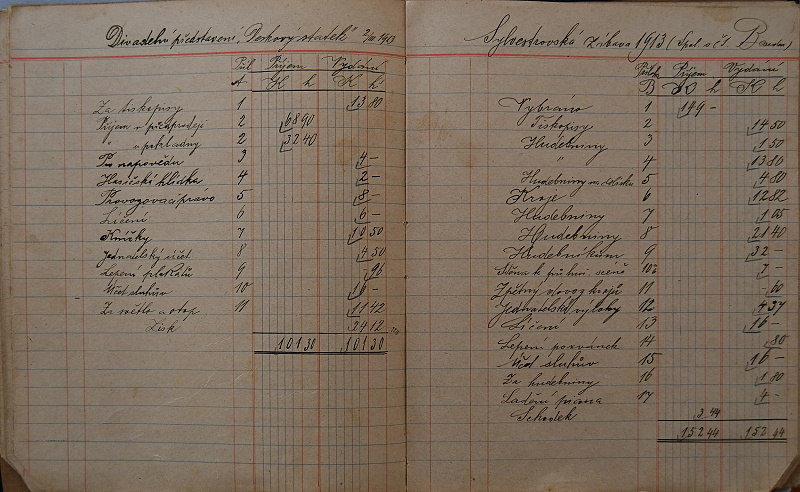 Divadelní představení „Peskový statek" 2/III 1913
Příl Příjem Vydání
A K h K h
Za tiskopisy 1 13 80
Příjem v předprodeji 2 68 90
" u pokladny 2 32 40
Za nápovědu 3 4 –
Hasičská hlídka 4 2 –
Provozovací právo 5 8 –
Líčení 6 6 –
Knížky 7 10 50
Jednatelský účet 8 4 50
Lepení plakátů 9 96
Účet sluhův 10 16 –
Za světlo a otop 11 11 42
Zisk 24 12
101 30 101 30
Sylvestrovská zábava 1913 (Spol. s čt. Besedou)
Příloha Příjem Vydání
B K h K h
Vybráno 1 149 –
Tiskopisy 2 14 50
Hudebniny 3 1 50
" 4 13 86
Hudebniny 5 4 80
Kroje 6 12 82
Hudebniny 7 1 05
Hudebniny 8 21 40
Hudebníkům 9 32 –
10 7 –
Zpětný dovoz krojů 11 – 60
Jednatelské výlohy 12 4 37
Líčení 13 16 –
Lepení pozvánek 14 80
Účet sluhův 15 16 –
Za hudebniny 16 1 80
Ladění piana 17 4 –
Schodek 3 44
152 44 152 44